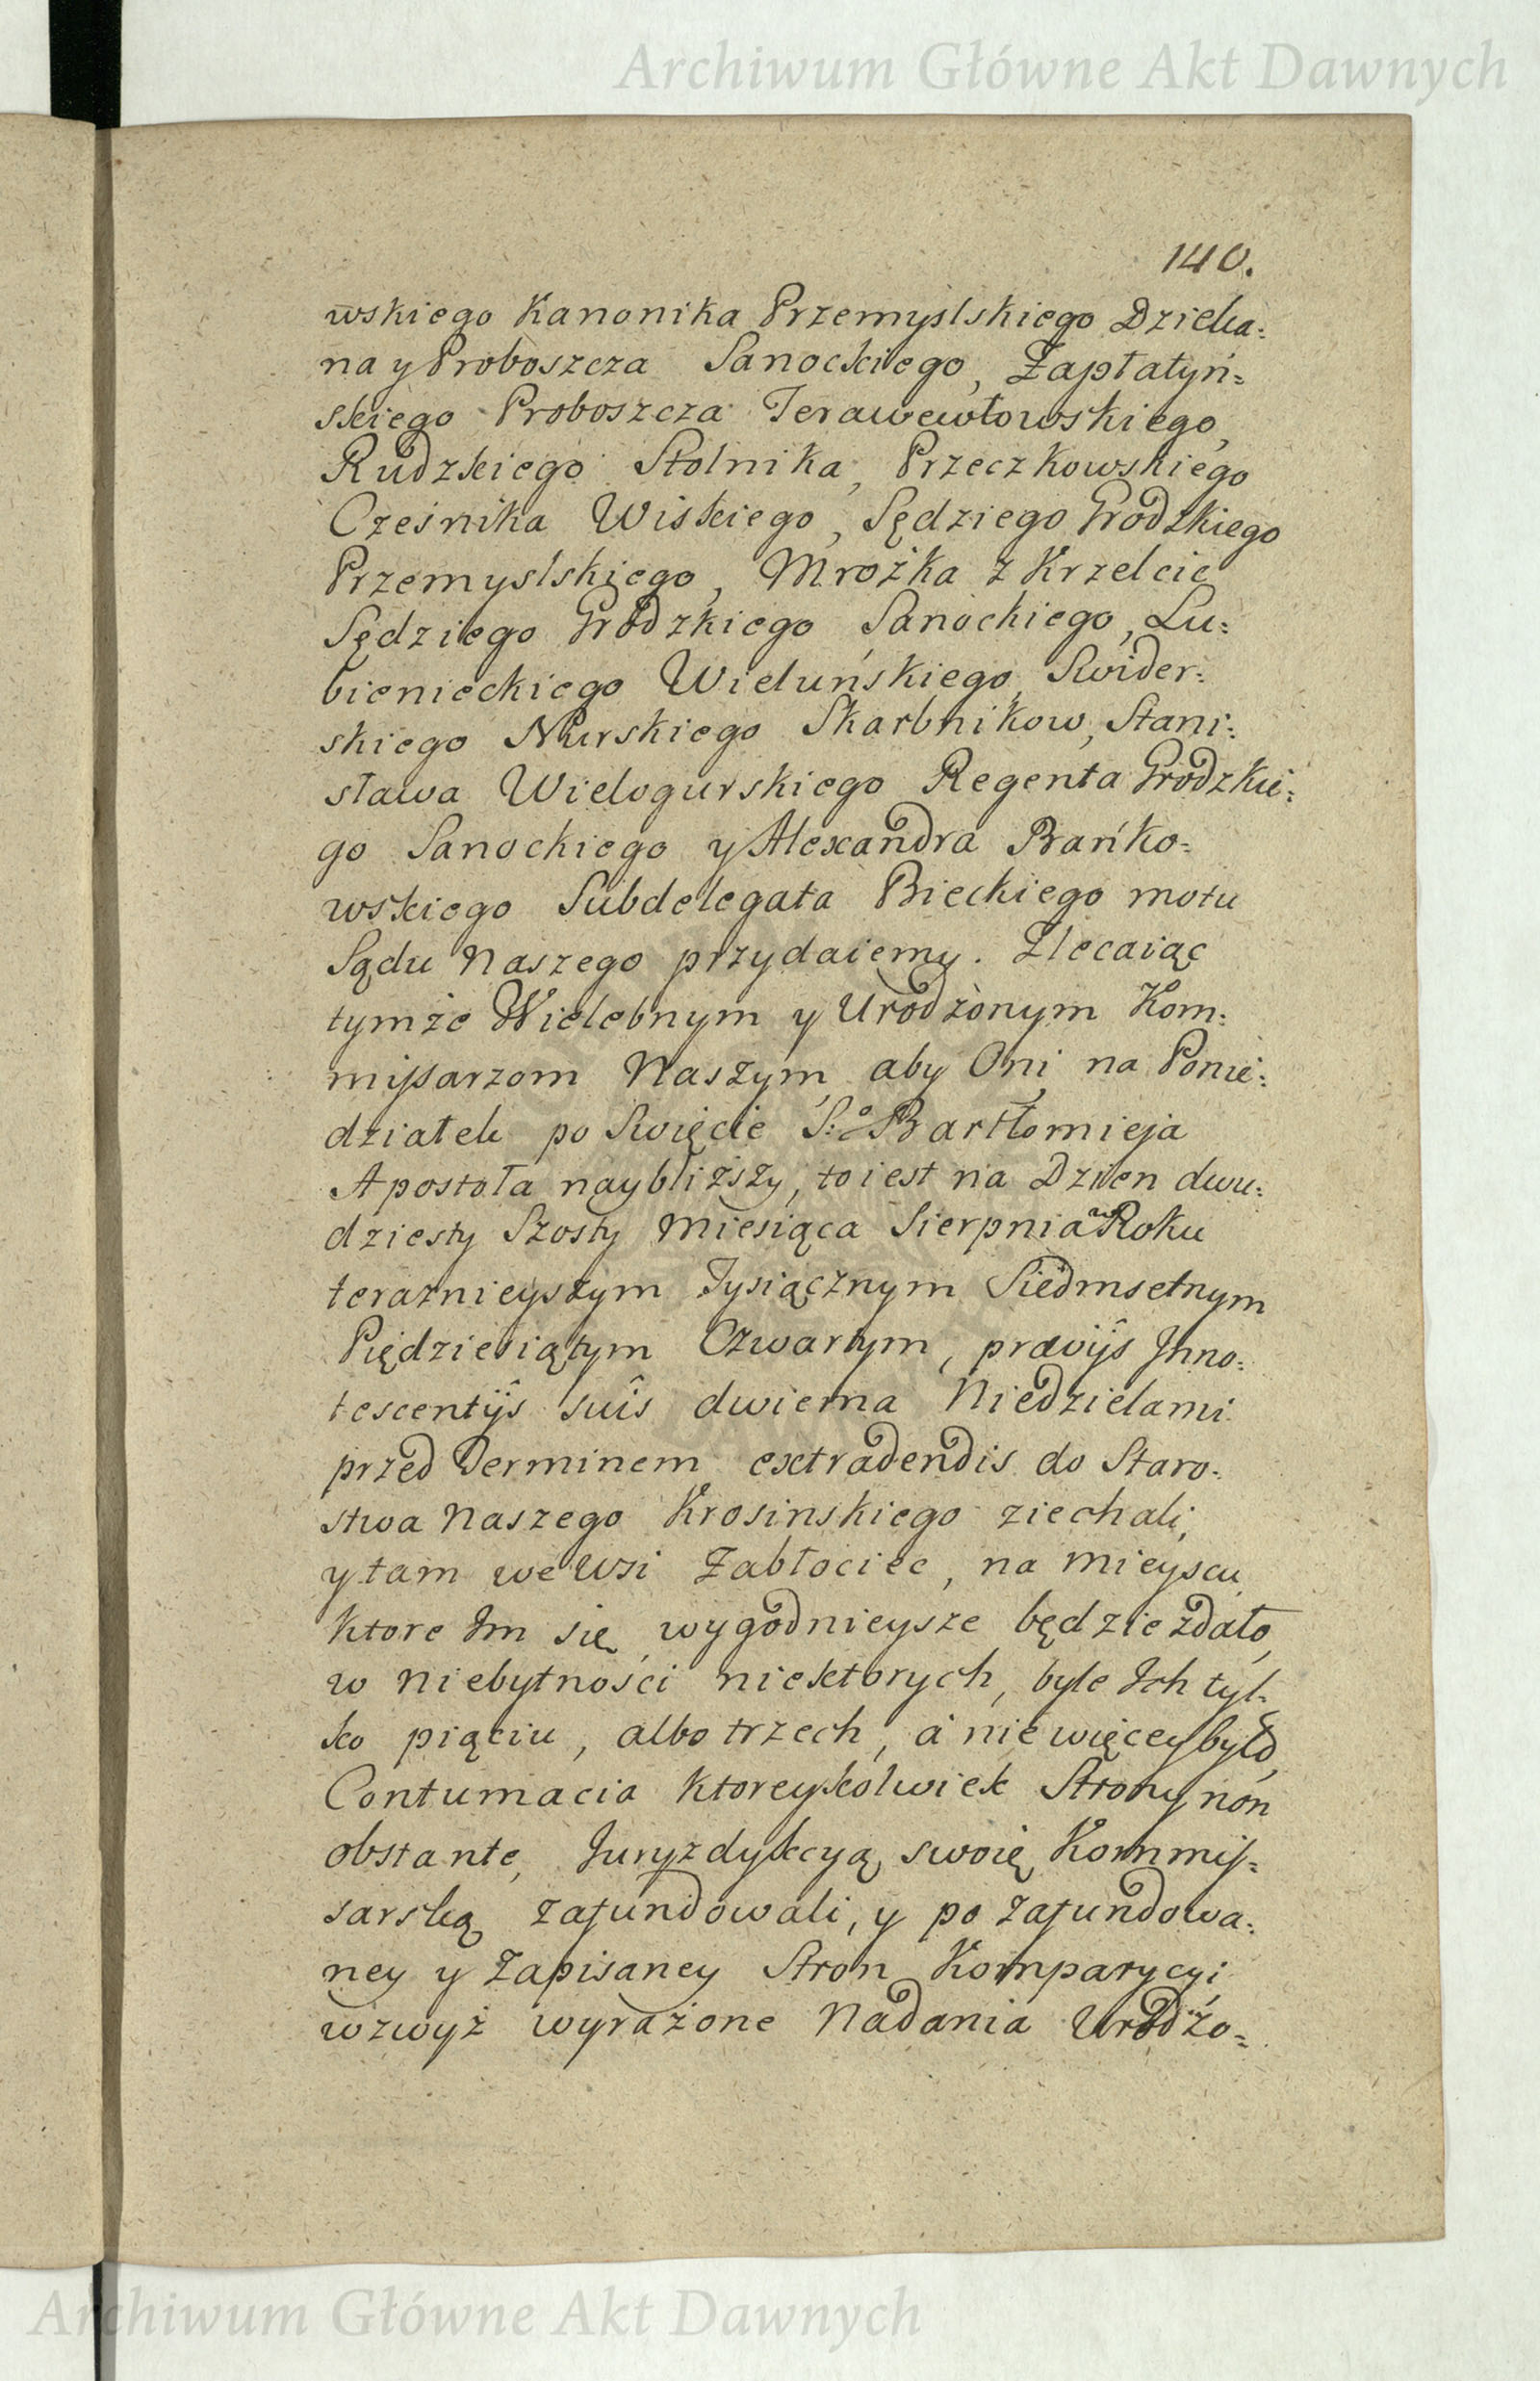 Archiwum Główne Akt Dawnych
140.
wskiego Kanonika Przemyslskiego Dzieka:
na y Proboszcza Sanockiego, Zapłatyń:
skiego Proboszcza Terawewłowskiego,
Rudzkiego Stolnika, Przeczkowskiego
Cześnika Wiskiego, Sędziego Grodzkiego
Przemyslskiego, Mrożka z Krzelcic
Sędziego Grodzkiego Sanockiego, Lu:
bienieckiego Wieluńskiego, Swider:
skiego Nurskiego Skarbnikow, Stani:
sława Wielogurskiego Regenta Grodzkie:
go Sanockiego y Alexandra Bańko:
wskiego Subdelegata Bieckiego motu
Sądu Naszego przydaiemy. Zlecaiąc
tymże Wielebnym y Urodzonym Kom:
missarzom Naszym, aby Oni na Ponie:
działek po Swięcie S:º Bartłomieja
Apostoła naybliższy, to iest na Dzien dwu:
dziesty Szosty Miesiąca Sierpnia w Roku
teraznieyszym Tysiącznym Siedmsetnym
Piędziesiątym Czwartym, prævijs Inno:
tescentijs suis dwiema Niedzielami
przed Terminem extradendis do Staro:
stwa Naszego Krosinskiego ziechali,
y tam we Wsi Zabłociec, na mieyscu
ktore Im się wygodnieysze będzie zdało,
w niebytności niektorych, byle Ich tyl:
ko pięciu, albo trzech, a nie więcey było,
Contumacia ktoreykolwiek Strony non
obstante, Juryzdykcyą swoię Kommis:
sarską zafundowali, y po zafundowa:
ney y Zapisaney Stron Komparycyi
wzwyż wyrażone Nadania Urodzo:
Archiwum Główne Akt Dawnych